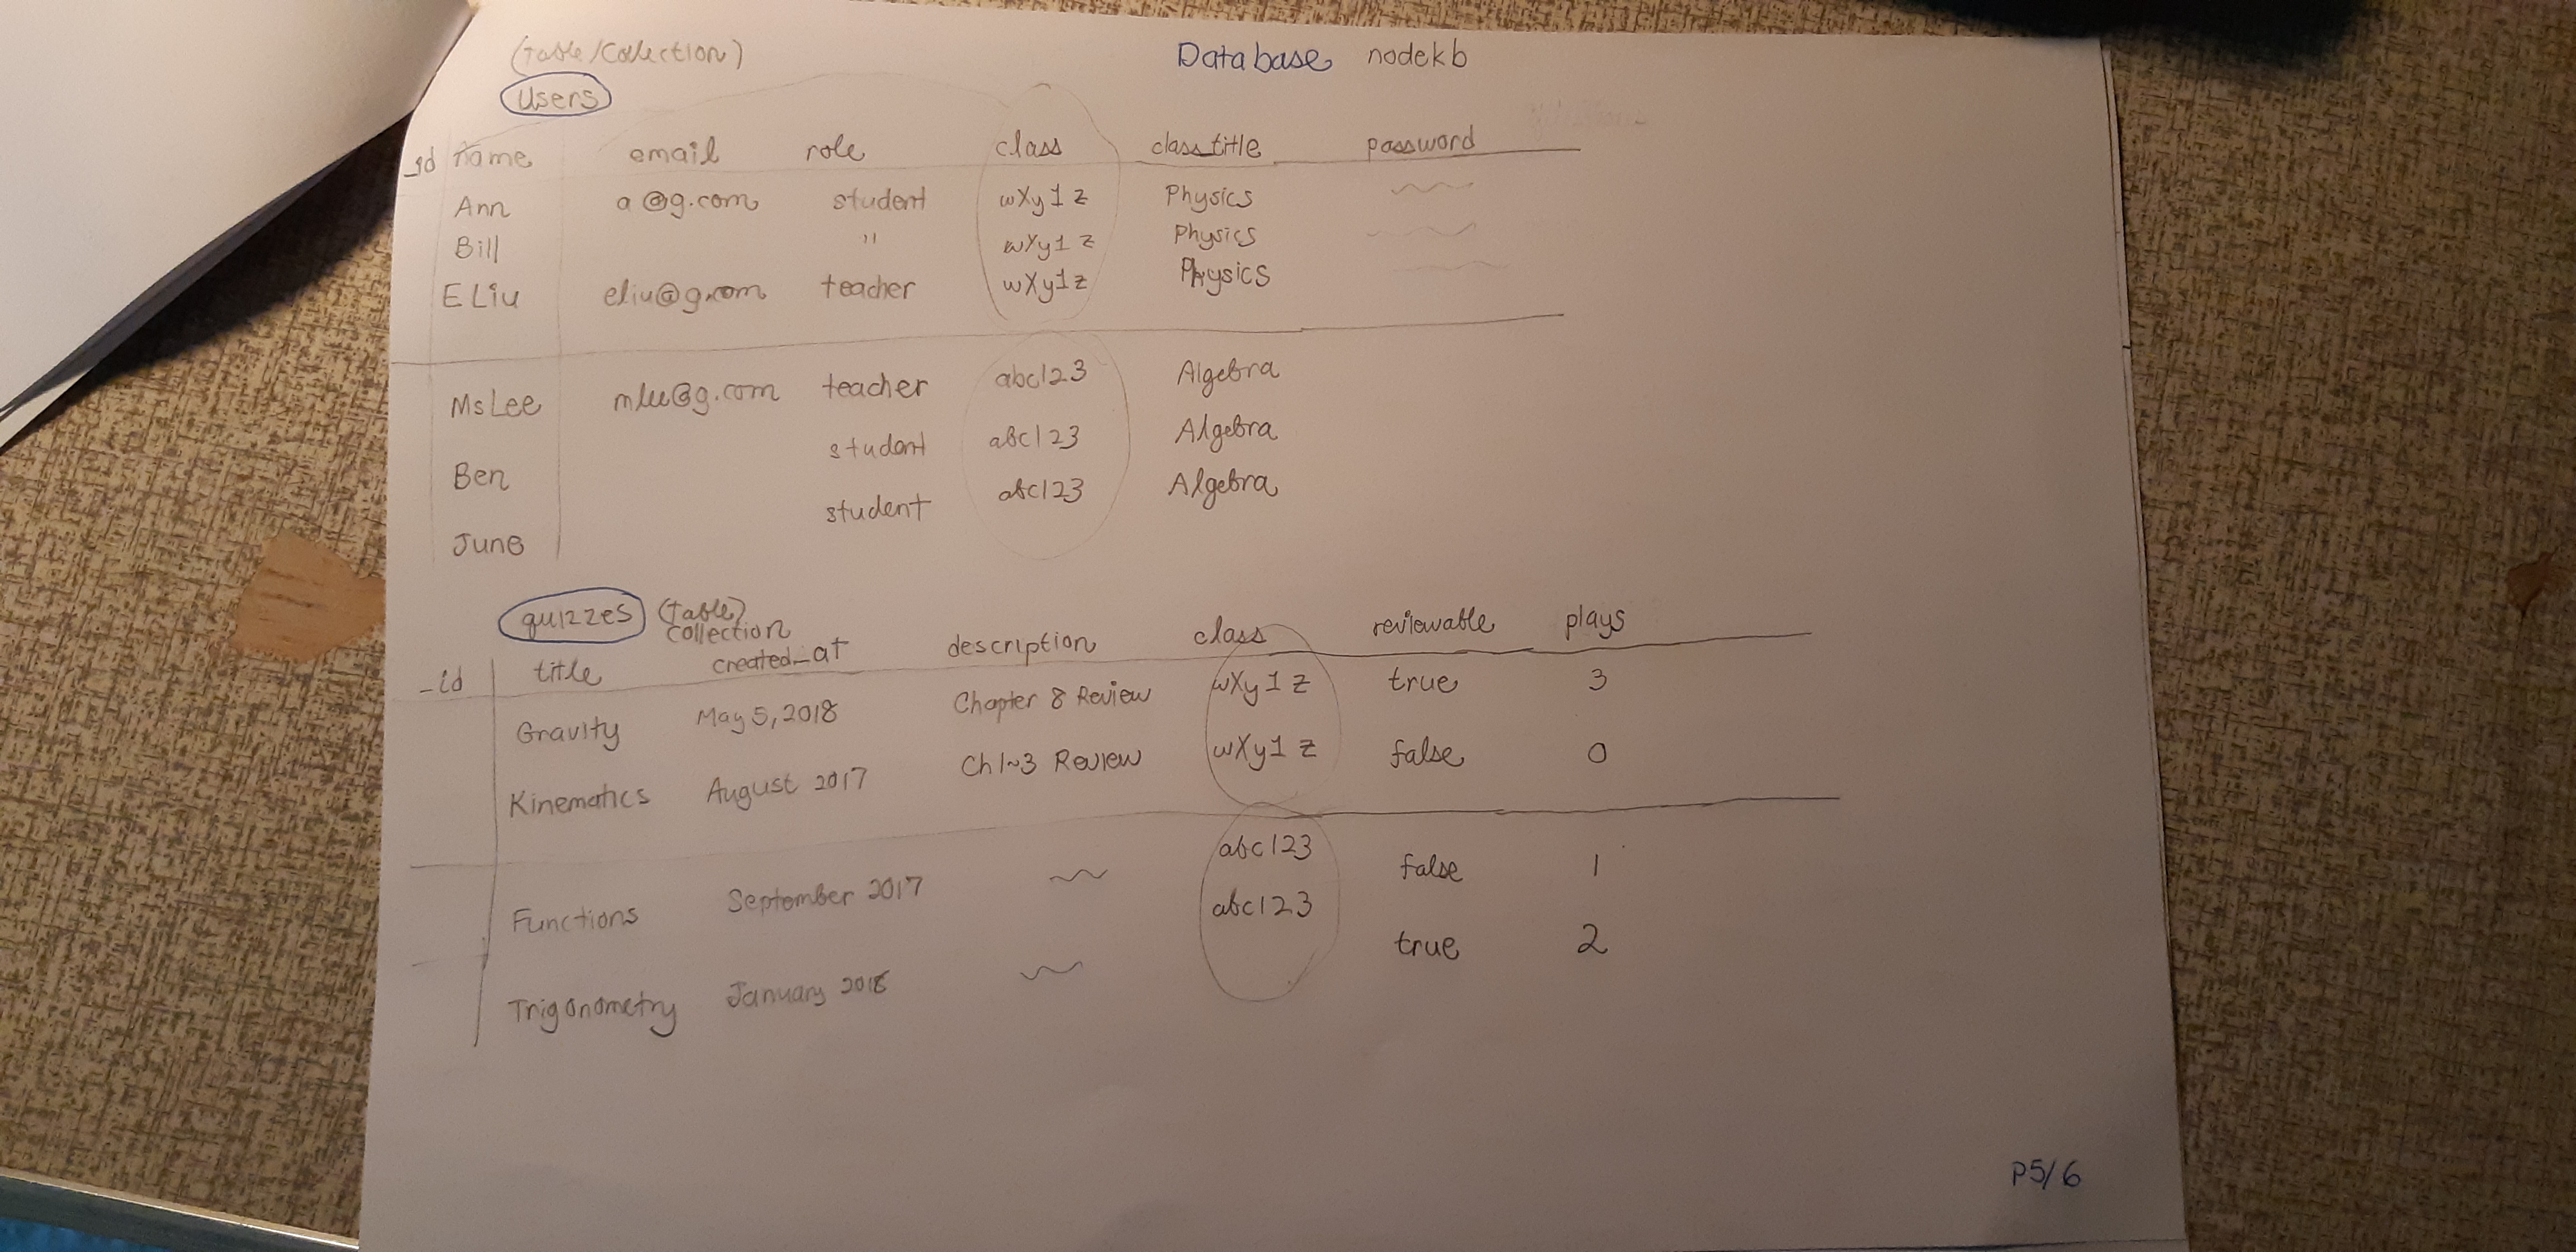 Database nodekb
(table/collection)
Users
_id name email role class class_title password
Ann a@g.com student wXy1z Physics
Bill " wXy1z Physics
E Liu eliu@g.com teacher wXy1z Physics
Ms Lee mlu@g.com teacher abc123 Algebra
Ben student abc123 Algebra
June student abc123 Algebra
quizzes (table)
collection
_id title created_at description class reviewable plays
Gravity May 5, 2018 Chapter 8 Review wXy1z true 3
Kinematics August 2017 Ch 1~3 Review wXy1z false 0
Functions September 2017 ~ abc123 false 1
Trigonometry January 2018 ~ abc123 true 2
P5/6